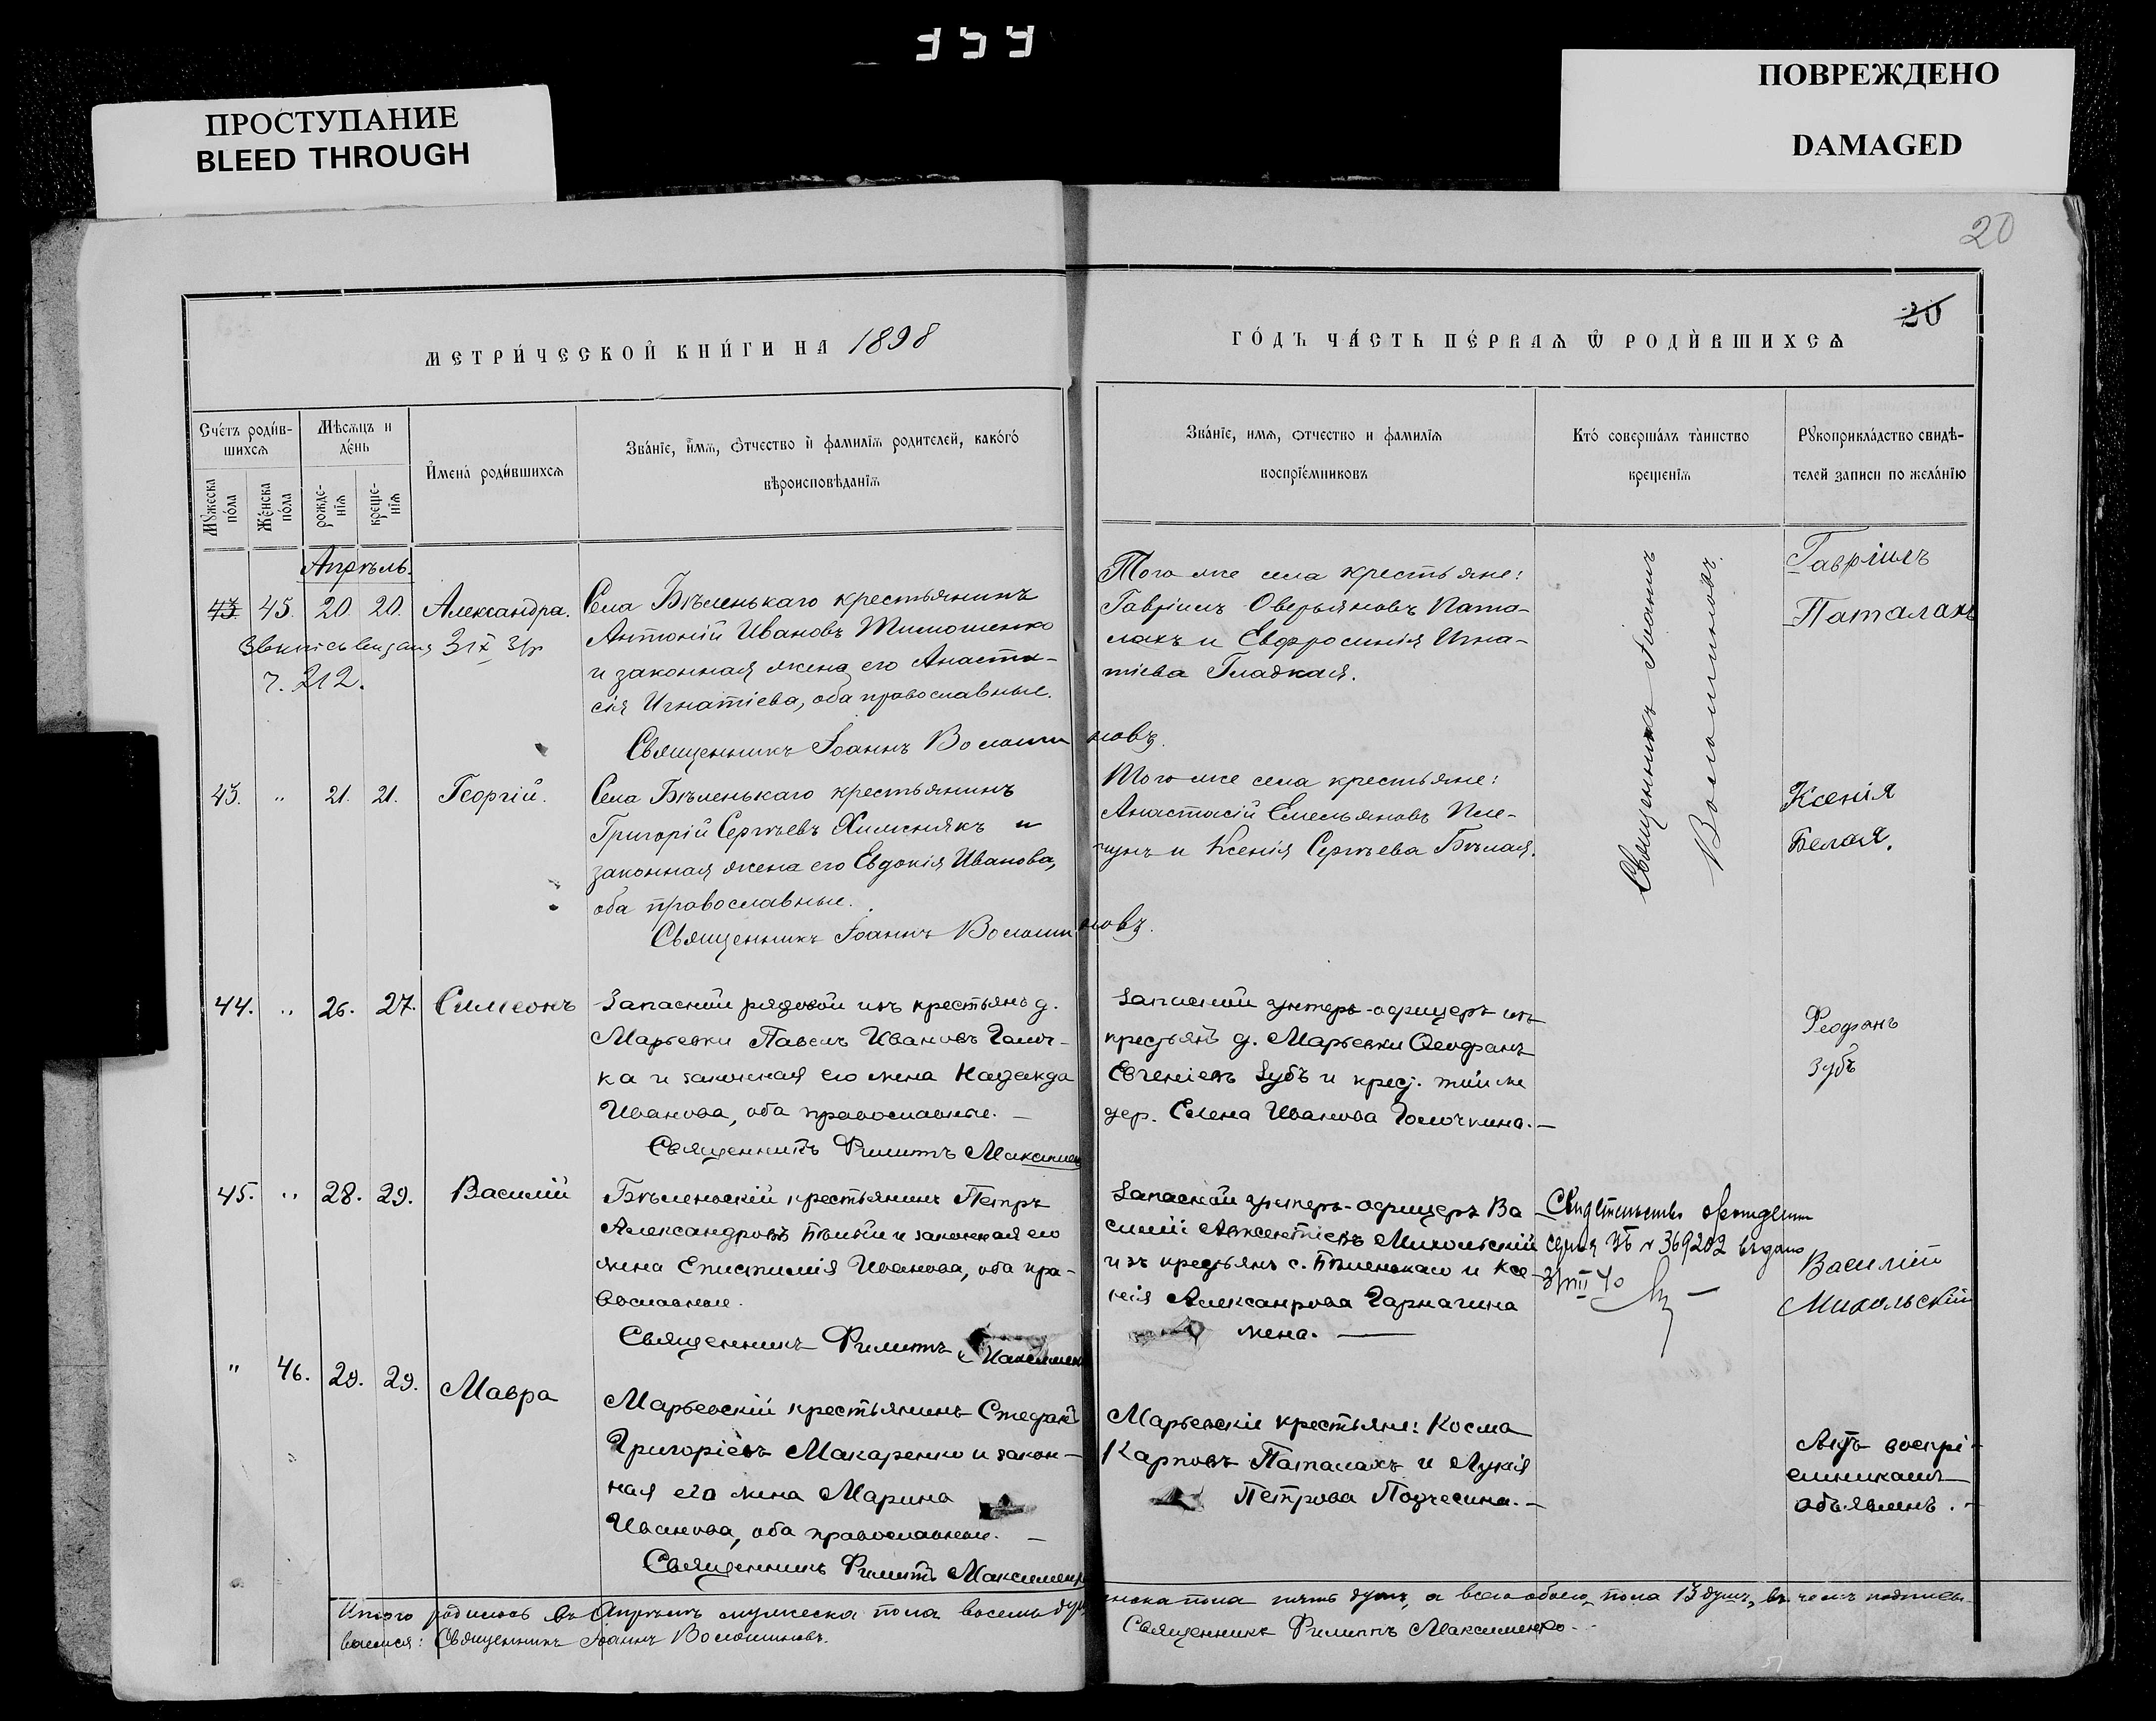 ПРОСТУПАНИЕ
BLEED THROUGH
ПОВРЕЖДЕНО
DAMAGED
20
20
МЕТРИ́ЧЕСКОЙ КНИ́ГИ НА 1898
ГО́ДЪ ЧА́СТЬ ПЕ́РВАѦ Ѿ РОДИ́ВШИХСѦ
Сче́тъ роди́в-
шихсѧ
Мꙋ́жеска по́ла
Же́нска по́ла
Мѣ́сѧцъ и
де́нь
рожде-
нїѧ
креще-
нїѧ
И҆мена́ роди́вшихсѧ
Зва́нїе, и҆́мѧ, ѻ҆́тчество и҆ фамилїѧ родителей, како́гѡ
вѣроисповѣ́данїѧ
Зва́нїе, имѧ, ѻтчество и фамилїѧ
воспрїе́мниковъ
Кто́ соверша́лъ та́инство
крещенїѧ
Рꙋкоприкла́дство свидѣ́-
телей записи по жела́нїю
Апрѣль.
43 45. 20 20. Александра.
Села Бѣленькаго крестьянинъ
Антоній Ивановъ Тимошенко
и законная жена его Анаста-
сія Игнатіева, оба православные.
Священникъ Іоаннъ Волошиновъ.
212.
Того же села крестьяне:
Гавріилъ Оверьяновъ Пата-
лахъ и Евфросинія Игна-
тіева Гладкая.
Священникъ Іоаннъ
Волошиновъ.
Гавріилъ
Паталахъ
43. " 21. 21. Георгій.
Села Бѣленькаго крестьянинъ
Григорій Сергѣевъ Хименякъ и
законная жена его Евдокія Иванова,
оба православные.
Священникъ Іоаннъ Волошиновъ.
Того же села крестьяне:
Анастасій Емельяновъ
и Ксенія Сергѣева Бѣлая.
Ксенія
Белая.
44. " 26. 27. Симеонъ
Запасной рядовой изъ крестьянъ д.
Марьевки Павелъ Ивановъ Галоч-
ка и законная его жена Надежда
Иванова, оба православные. —
Священникъ Филиппъ Максимен
Запасной унтеръ-офицеръ изъ
крестьянъ д. Марьевки Ѳеофанъ
Евгеніевъ Зубъ и крест. той же
дер. Елена Иванова Голочкина. —
Феофанъ
Зубъ
45. " 28. 29. Василій
Бѣленьскій крестьянинъ Петръ
Александровъ Бѣлый и законная его
жена Епистимія Иванова, оба пра-
вославные.
Священникъ Филиппъ Максимен
Запасной унтеръ-офицеръ Ва
силій Авксентіевъ Микольскій
изъ крестьянъ с. Бѣленькаго и Ксе-
нія Александрова Гармагина
жена. —
Свидетельство о рождении
серия № 369202 выдано
31/VIII 40
Василій
Микольскій
" 46. 29. 29. Мавра
Марьевскій крестьянинъ Стефанъ
Григоріевъ Макаренко и закон-
ная его жена Марина
Иванова, оба православные. —
Священникъ Филиппъ Максименк
Марьевскіе крестьяне: Косма
Карповъ Паталахъ и Лукія
Петрова Подчесина. —
Актъ воспрі-
емникамъ
объявленъ. —
Итого родилось въ Апрѣлѣ мужеска пола восемь душ женска пола пять душъ, а всего обоего пола 13 душъ, въ чемъ подписы-
ваемся: Священникъ Іоаннъ Волошиновъ.
Священникъ Филиппъ Максименко.